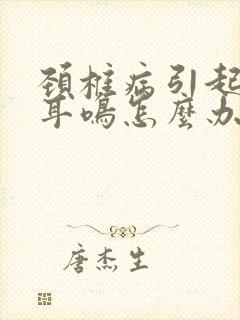 頚椎病引起
耳鳴怎麼办
唐杰生